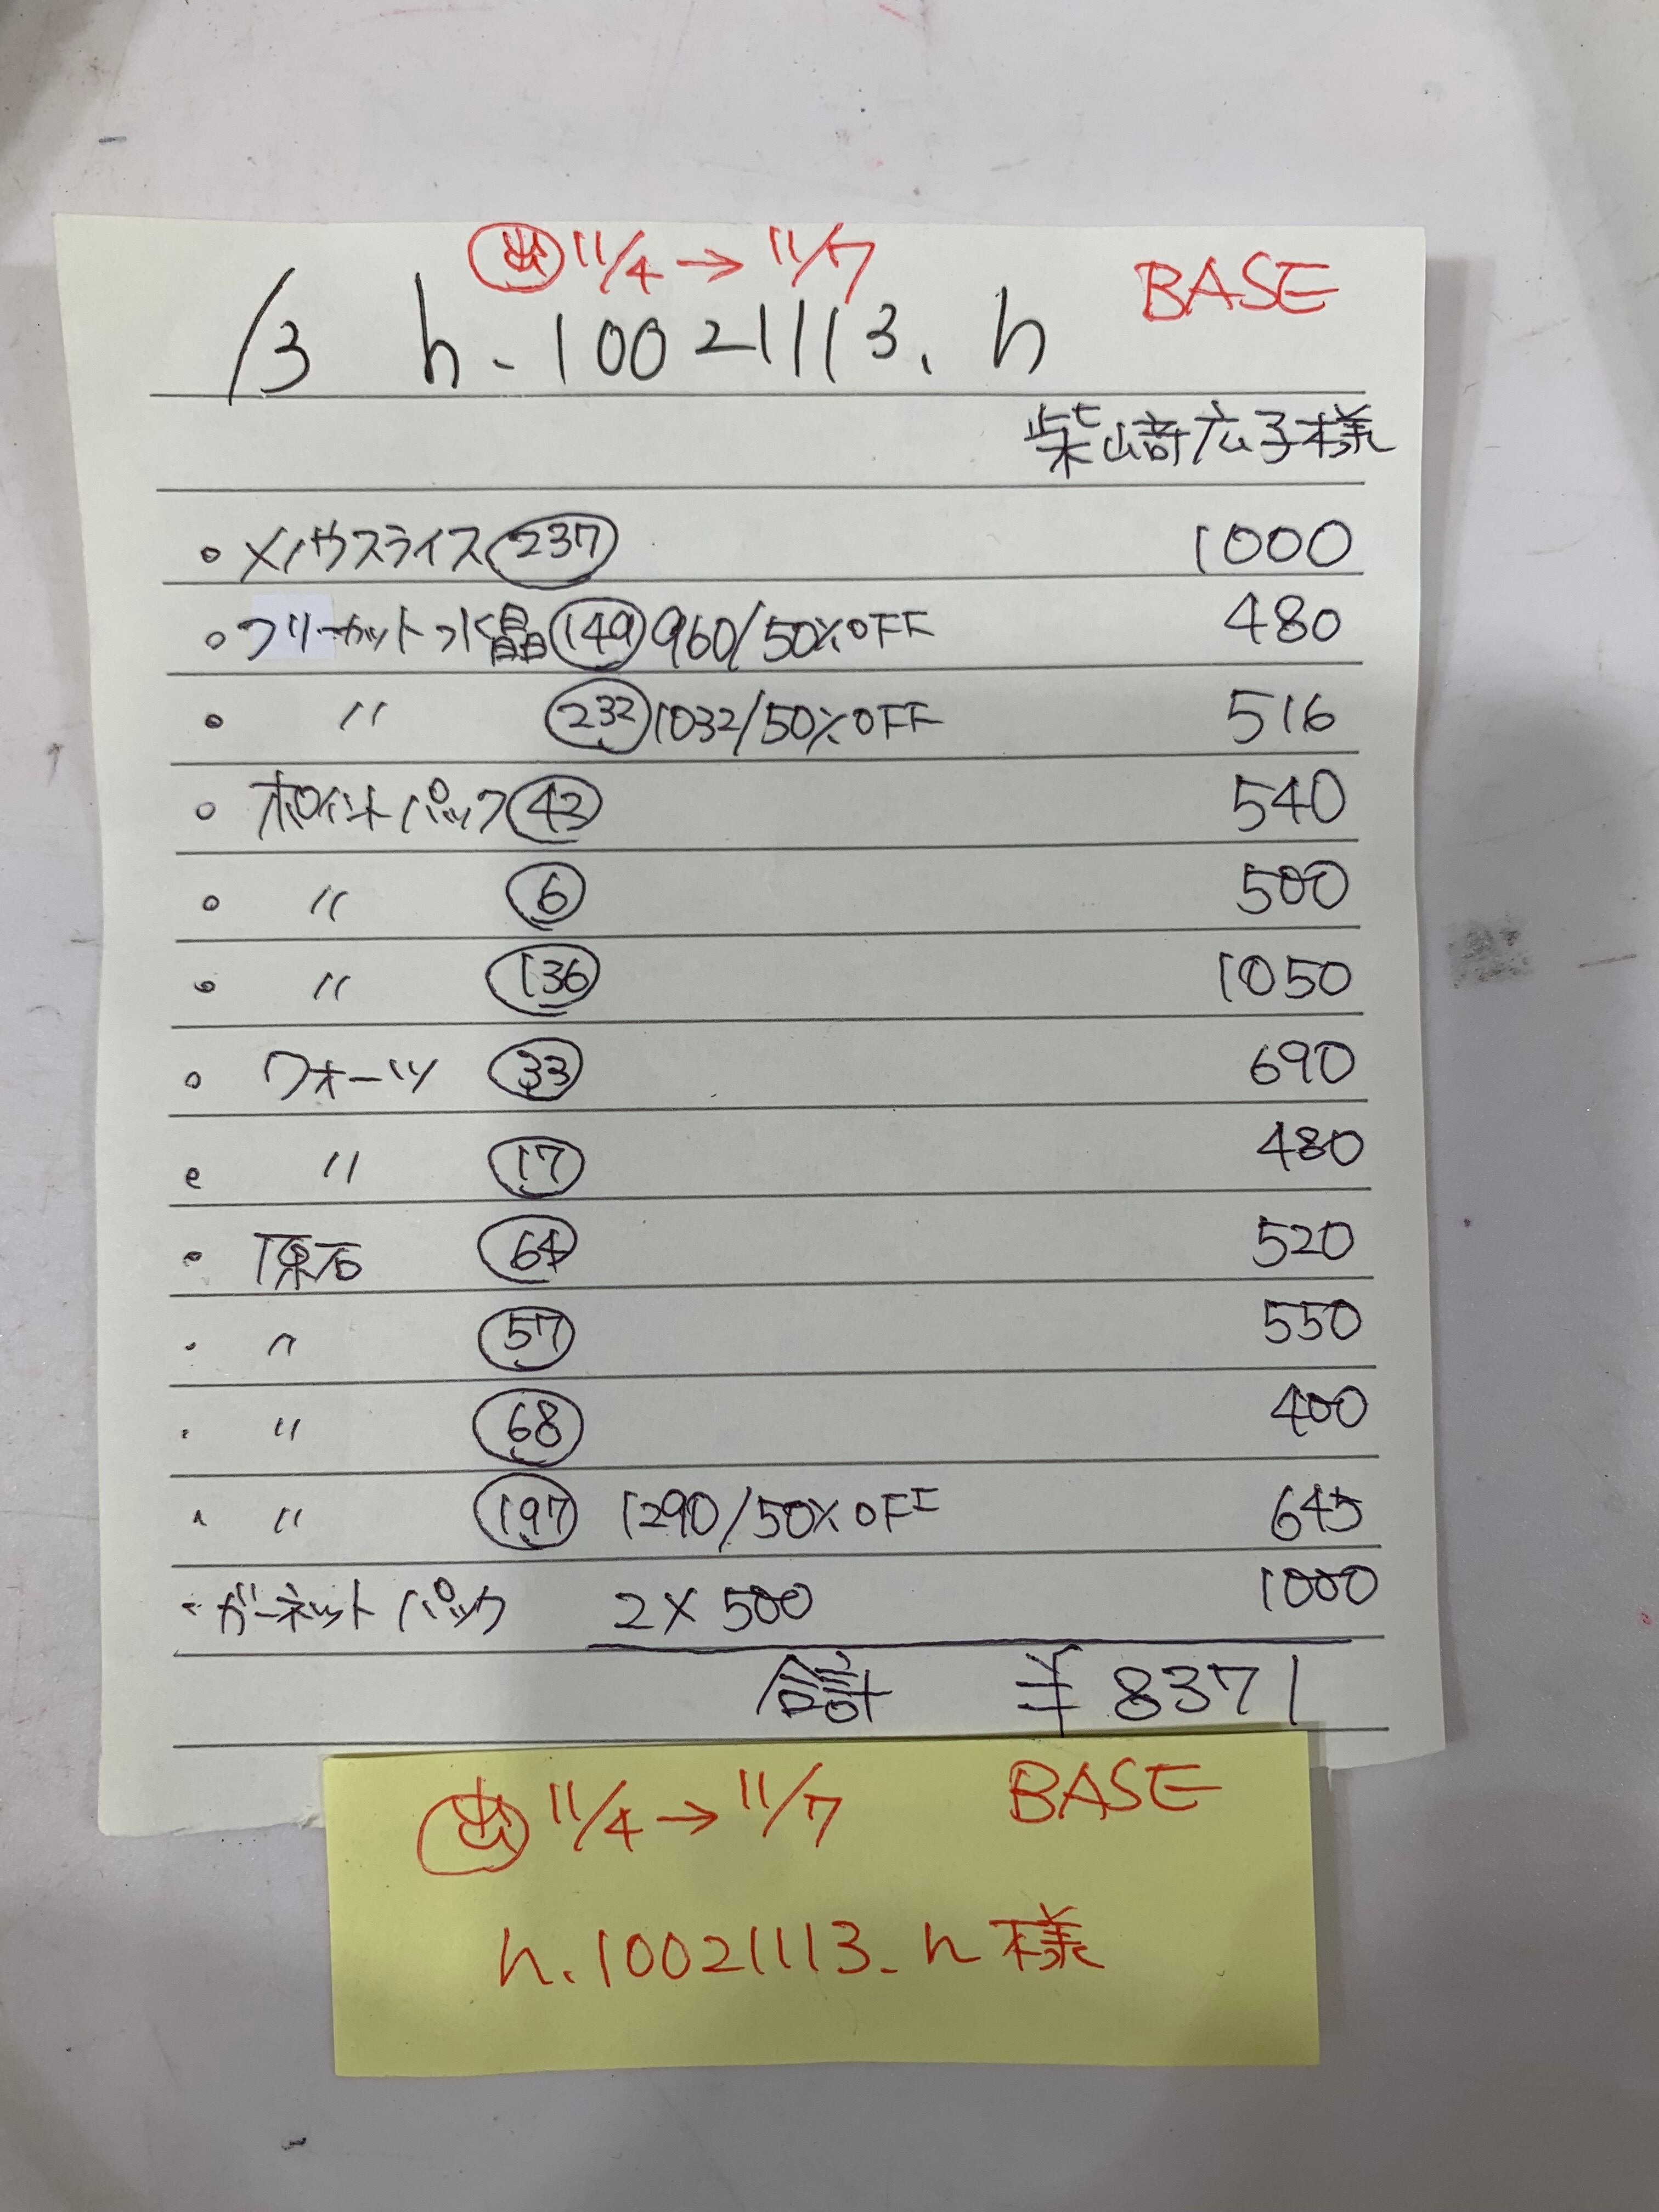 出 11/4→11/7 BASE
13 h.10021113.h
柴﨑広子様
・メノウスライス 237 1000
・フリーカット水晶 149 960/50%OFF 480
・ 〃 232 1032/50%OFF 516
・ポイントパック 42 540
・ 〃 6 500
・ 〃 136 1050
・クォーツ 33 690
・ 〃 17 480
・原石 64 520
・ 〃 57 550
・ 〃 68 400
・ 〃 197 1290/50%OFF 645
・ガーネットパック 2×500 1000
合計 ¥8371
出 11/4→11/7 BASE
h.10021113.h様